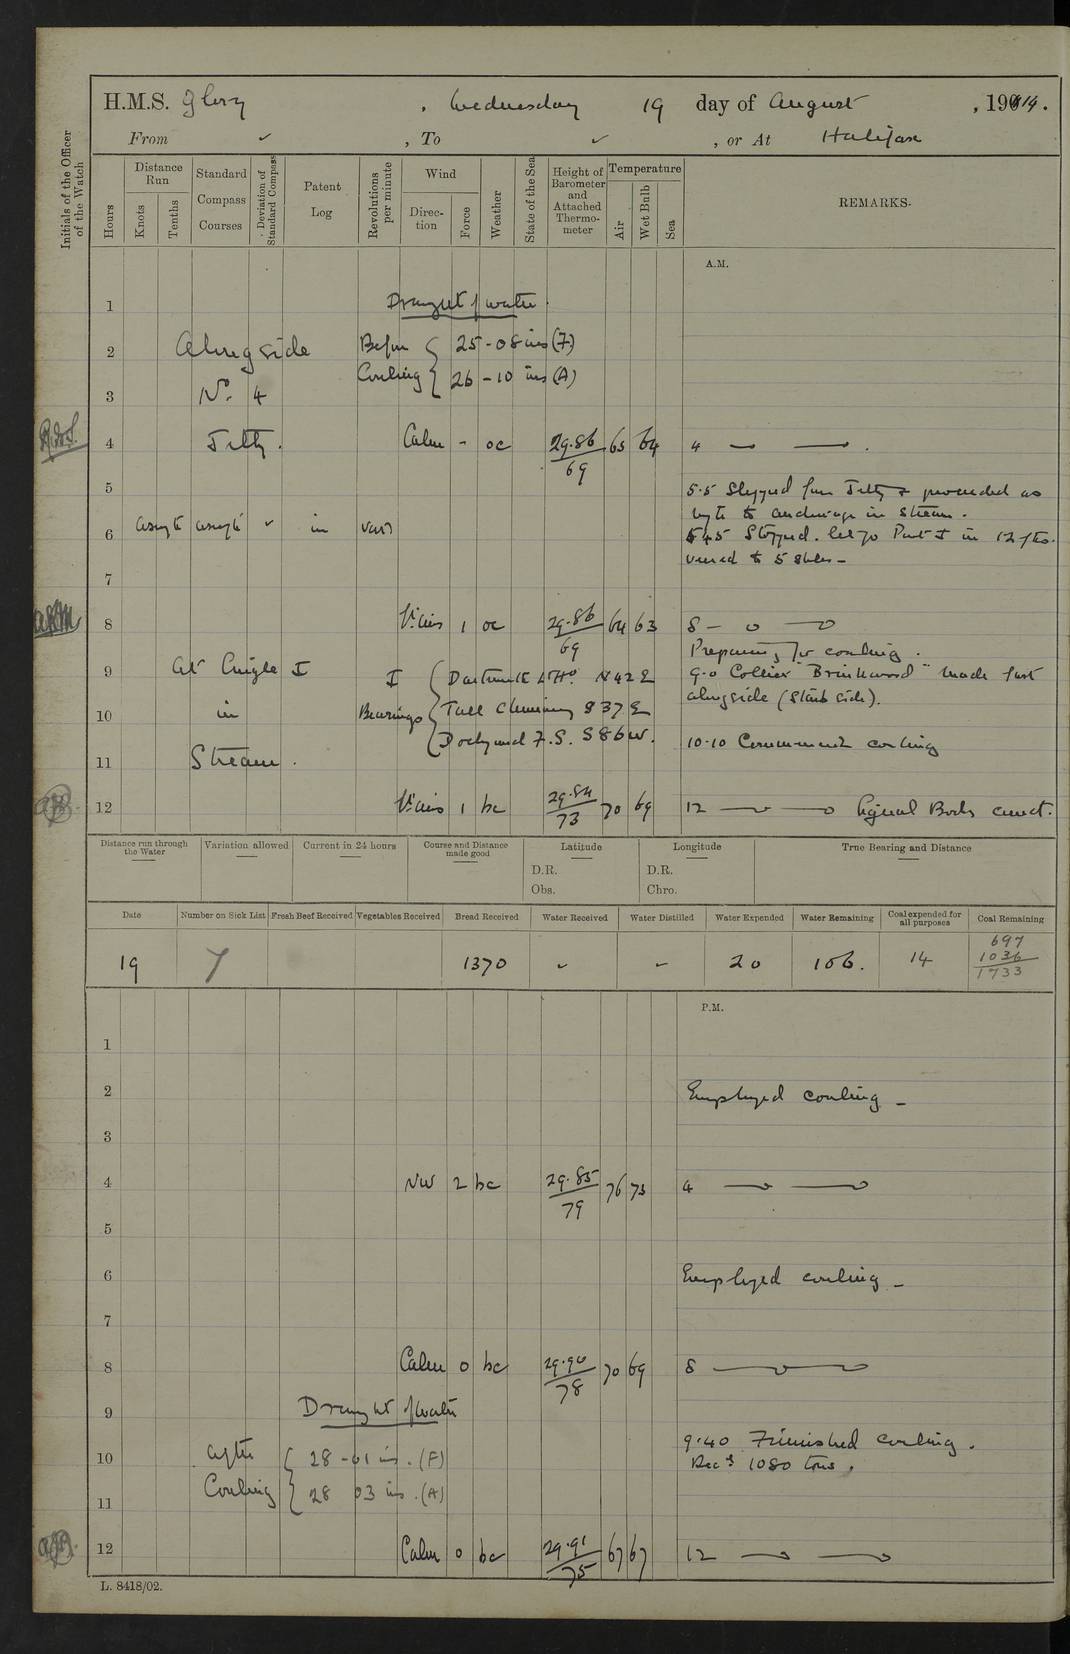 H.M.S. Glory, Wednesday 19 day of August, 1914.
From ✓, To ✓, or At Halifax
Initials of the Officer of the Watch
Hours
Distance Run
Knots
Tenths
Standard Compass Courses
Deviation of Standard Compass
Patent Log
Revolutions per minute
Wind
Direction
Force
Weather
State of the Sea
Height of Barometer and Attached Thermometer
Temperature
Air
Wet Bulb
Sea
REMARKS.
A.M.
1 Draught of water.
2 Alongside Before 25-08 ins (F)
Coaling 26-10 ins (A)
3 No. 4
4 Jetty. Calm - oc 29.86/69 65 64 4
5
5.5 Slipped from Jetty & proceeded as
to anchorage in stream.
6 ✓ in var)
5.45 Stopped. let go Port I in 12 fms.
veered to 5 shles -
7
8 Vairs 1 oc 29.86/69 64 63 8
Preparing for coaling.
9 At Single I I Dartmouth N42E
9.0 Collier "Brinkwood" made fast
alongside (Starb side).
10 in Bearings Tall Chimney S37E
Dockyard F.S. S86W.
10.10 Commenced coaling
11 Stream.
12 Vairs 1 bc 29.84/73 70 69 12 Signal Books correct.
Distance run through the Water
Variation allowed
Current in 24 hours
Course and Distance made good
Latitude
Longitude
True Bearing and Distance
D.R. D.R.
Obs. Chro.
Date
Number on Sick List
Fresh Beef Received
Vegetables Received
Bread Received
Water Received
Water Distilled
Water Expended
Water Remaining
Coal expended for all purposes
Coal Remaining
697
1036
19 7 1370 ✓ ✓ 20 106. 14 1733
P.M.
1
2 Employed coaling -
3
4 NW 2 bc 29.85/79 76 73 4
5
6 Employed coaling -
7
8 Calm 0 bc 29.90/78 70 69 8
9 Draught of water
9.40 Finished coaling.
10 After 28-01 ins. (F) Recd 1080 tons.
Coaling 28 03 ins. (A)
11
12 Calm 0 bc 29.91/75 67 67 12
L. 8418/02.